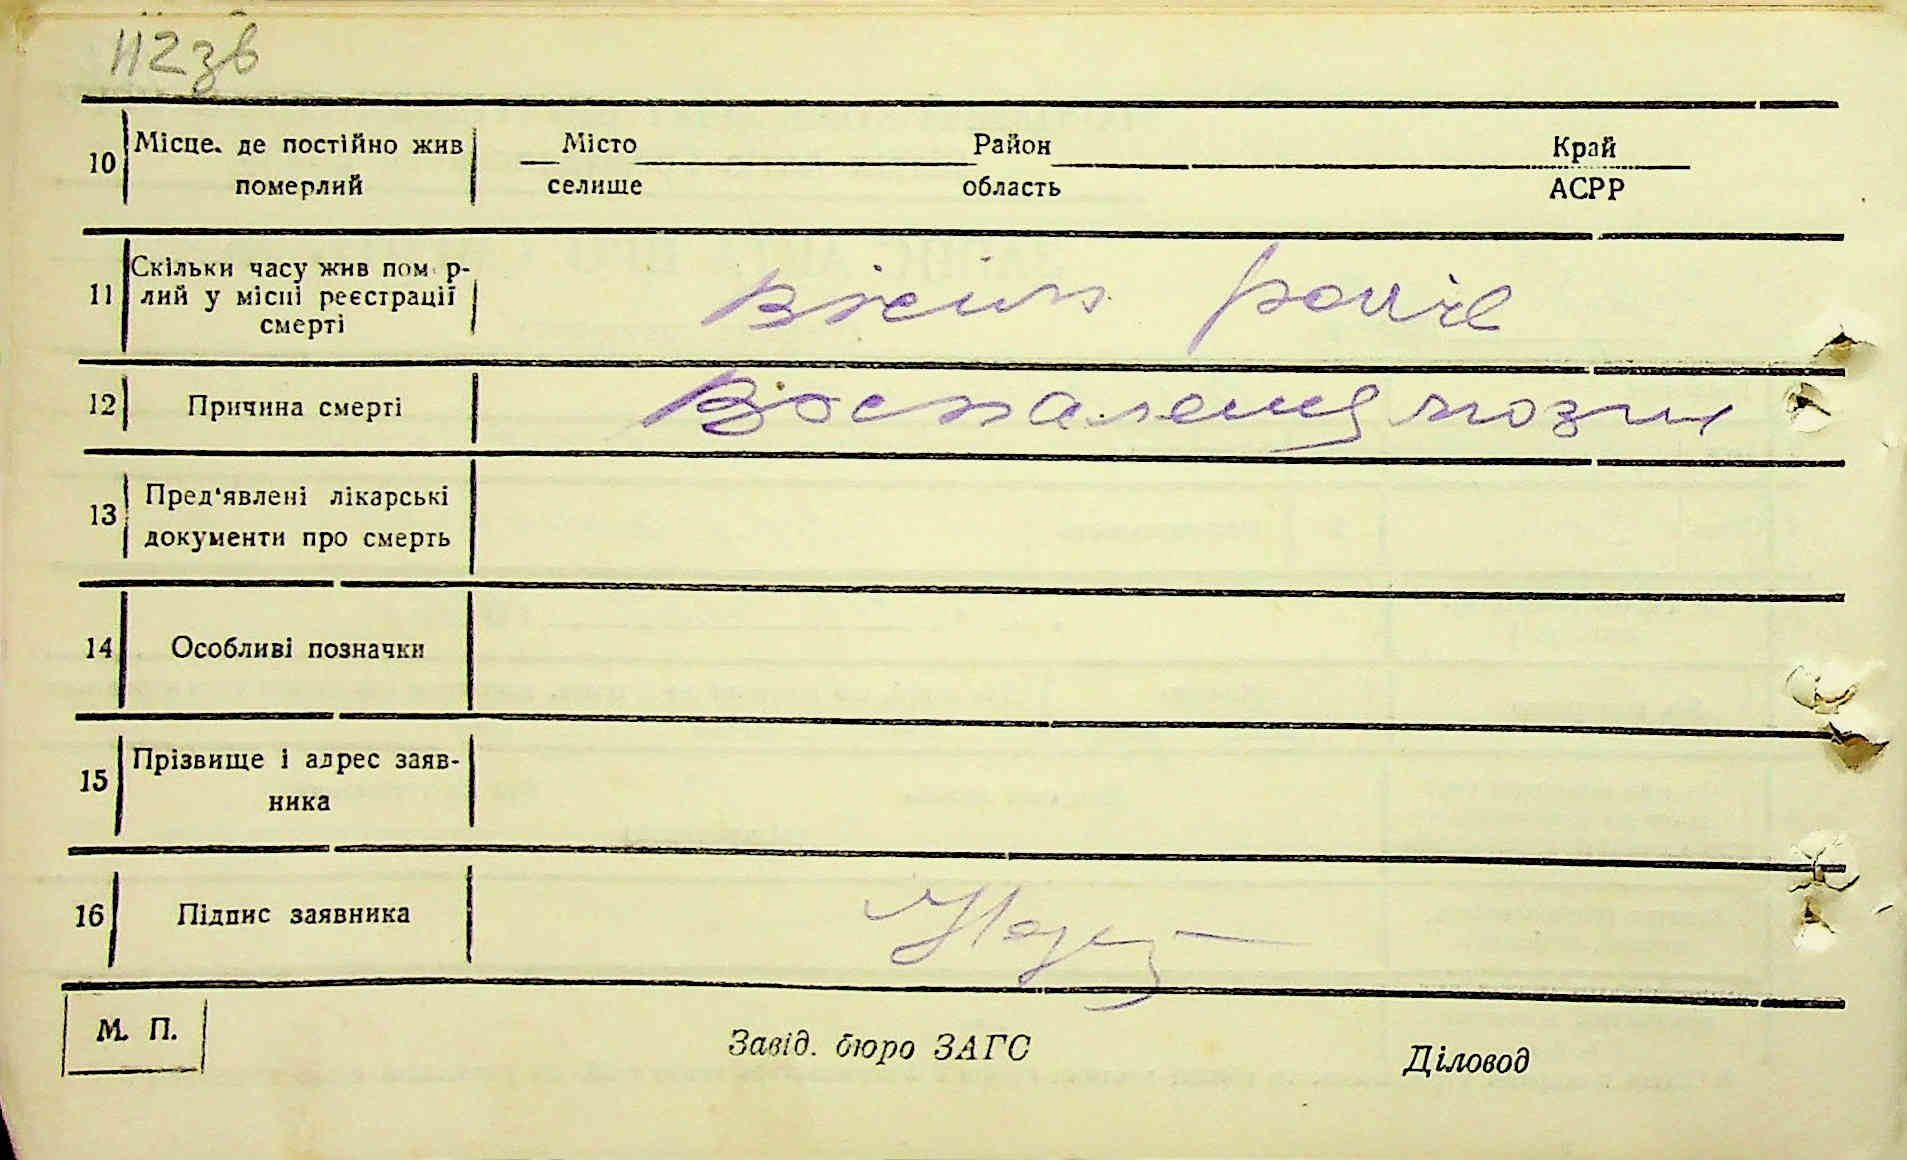 112зв
10 Місце, де постійно жив померлий
Місто Район Край
селище область АСРР
11 Скільки часу жив пом р-
лий у місці реєстрації
смерті
вісім років
12 Причина смерті Воспаления мозги
13 Пред'явлені лікарські
документи про смерть
14 Особливі позначки
15 Прізвище і адрес заяв-
ника
16 Підпис заявника
М. П.
Завід. бюро ЗАГС Діловод